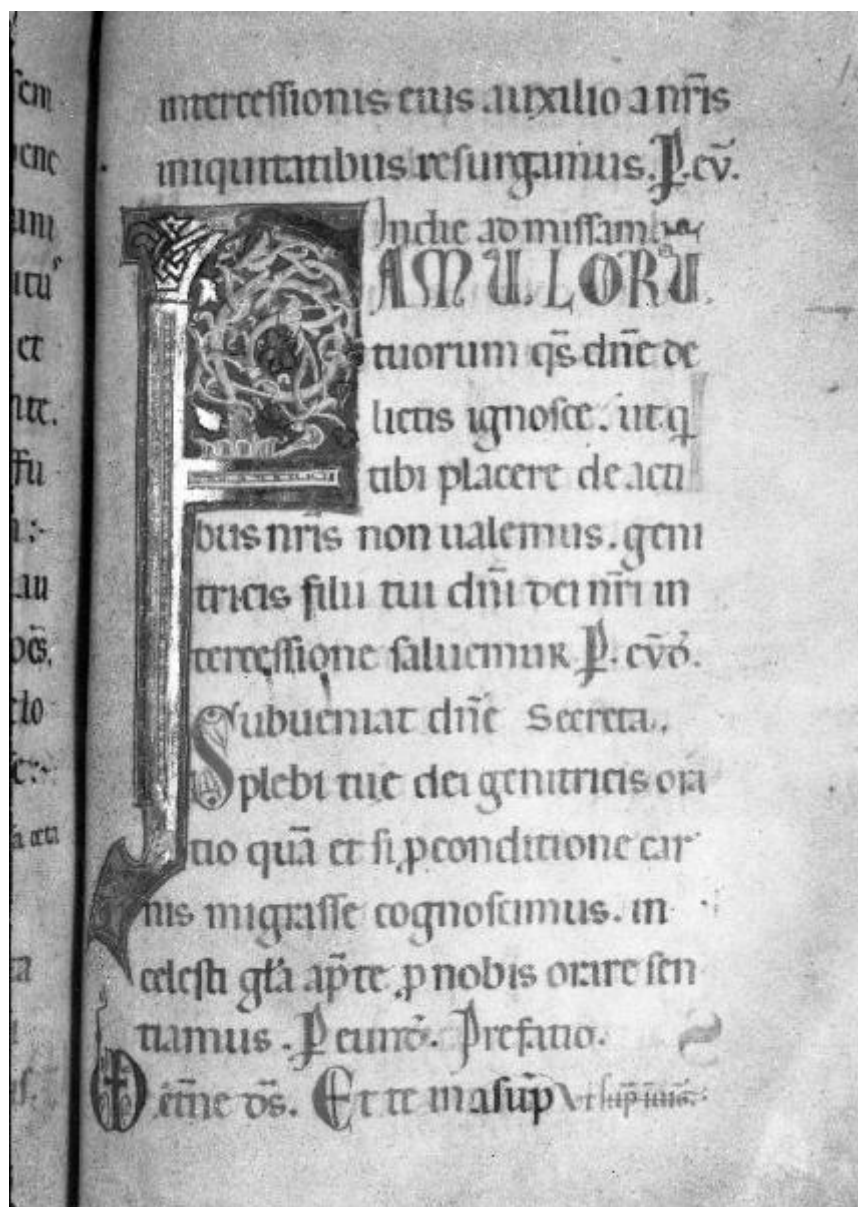 intercessionis eius auxilio a nr̄is
iniquitatibus resurgamus. P. ev̄.
In die ad missam
FAMULORU
tuorum qs̄ dn̄e de
lictis ignosce. ut q
tibi placere de acti
bus nr̄is non ualemus. geni
tricis filii tui dn̄i dei nr̄i in
tercessione saluemur P. ev̄d̄.
Subueniat dn̄e Secreta.
plebi tue dei genitricis ora
tio quā et si ꝑ conditione car
nis migrasse cognoscimus. in
celesti gl̄a ap̄te ꝓ nobis orare sen
tiamus. P eund̄. Prefatio.
et̄ne ds̄. Et te in asūp